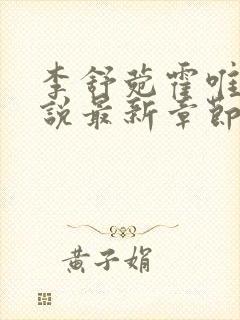 李舒菀霍唯
說最新章節
黄子娟